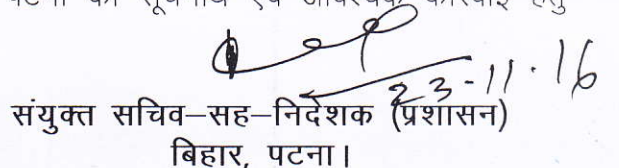 पटना को सूचनार्थ एवं आवश्यक कार्रवाई हेतु
23-11-16
संयुक्त सचिव–सह–निदेशक (प्रशासन)
बिहार, पटना।